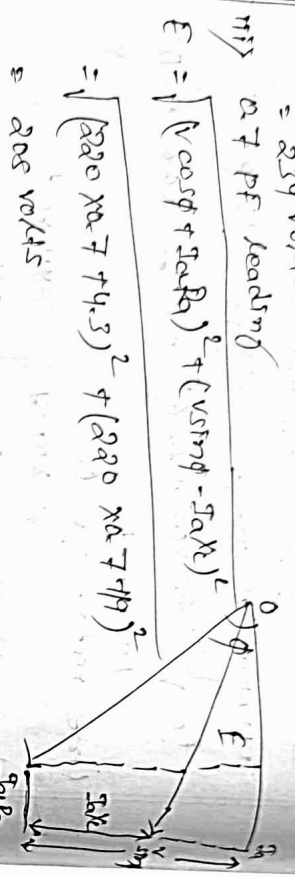 = 234
iii) 0.7 PF leading
E = √(Vcosφ + IaRa)² + (Vsinφ - IaXL)²
= √(220 x0.7 + 4.3)² + (220 x0.7 + 19)²
= 205 volts
O
φ
E
V
IaXL
IaR